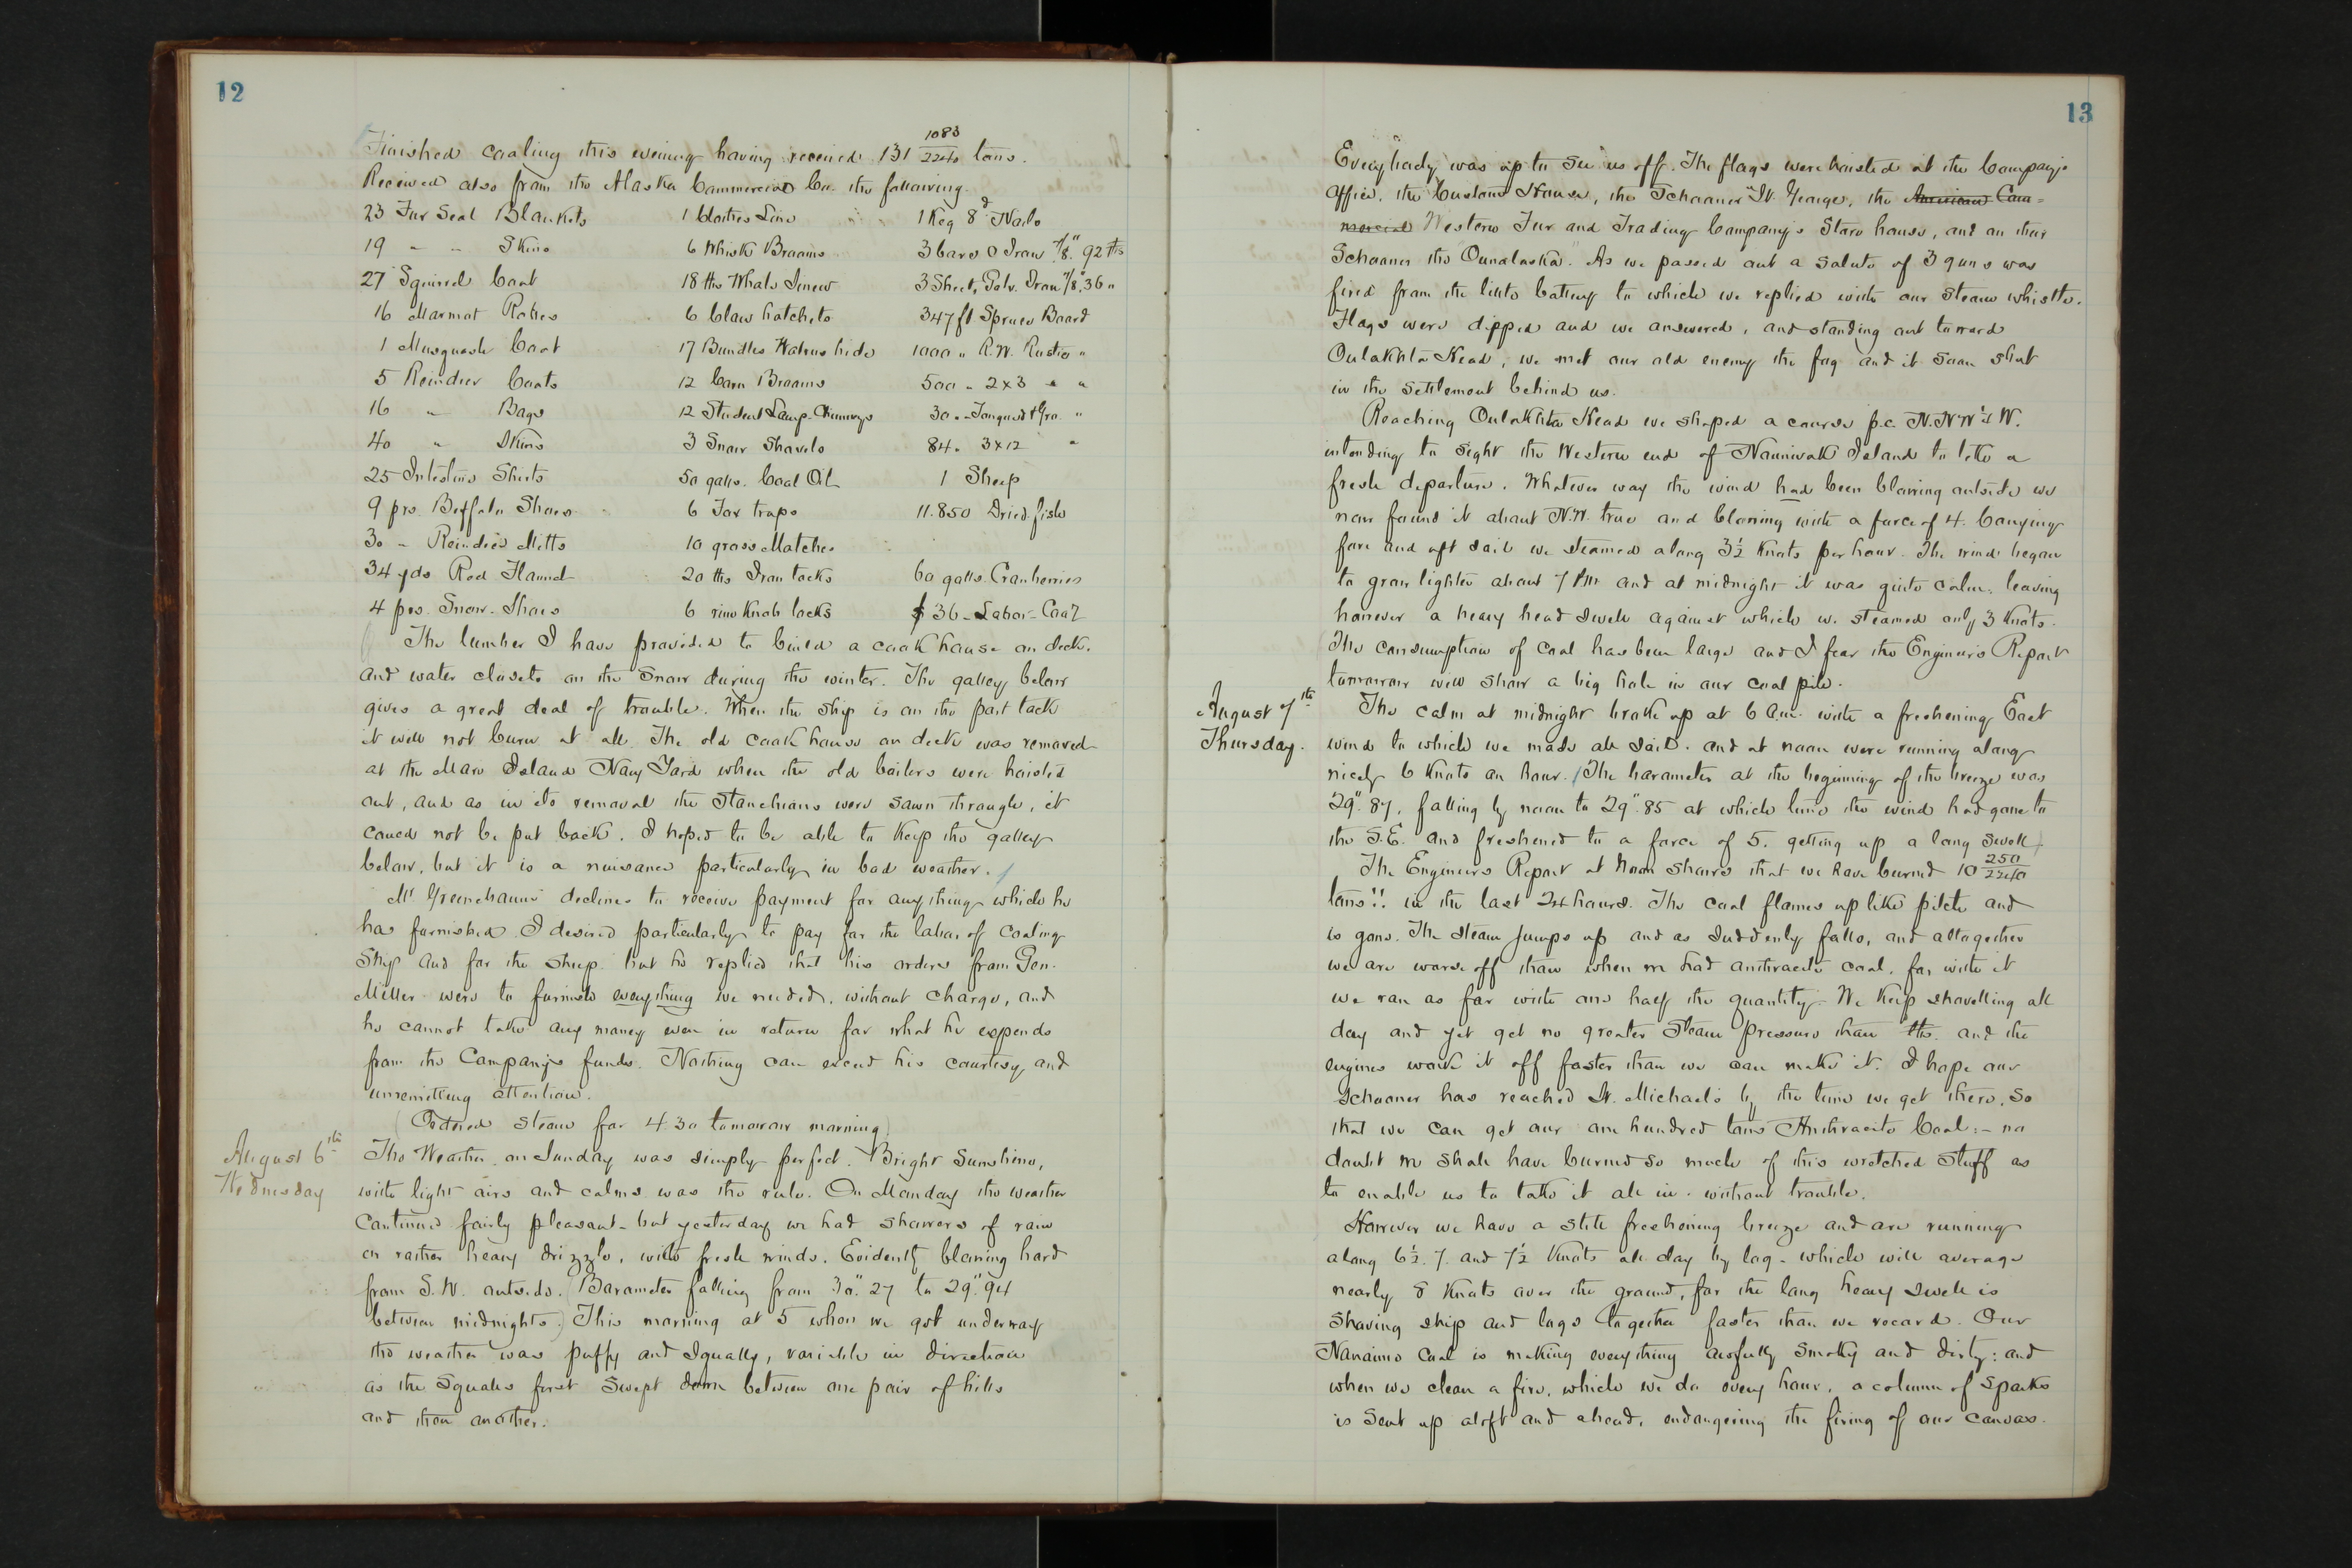 12
Finished coaling this evening having received 131 1083/2240 tons.
Received also from the Alaska Commercial Co. the following.
23 Fur Seal Blankets 1 Clothes Line 1 Keg 8d Nails
19 " " Skins 6 Whisk Brooms 3 bars O Iron 7/8" 92 lbs
27 Squirrel Coat 18 lbs Whale Sinew 3 Sheets Galv. Iron 1/8" 36 "
16 Marmot Robes 6 Claw hatchets 347 ft Spruce Board
1 Musquash Coat 17 Bundles Walrus hide 1000 " R.W. Rustic "
5 Reindeer Coats 12 Corn Brooms 500 " 2x3 " "
16 " Bags 12 Student Lamp-Chimneys 30 " Tongued & Gro. "
40 " Skins 3 Snow Shovels 84 " 3x12 "
25 Intestine Shirts 50 galls. Coal Oil 1 Sheep
9 prs. Buffalo Shoes 6 Fox traps 11.850 Dried fish
30 " Reindeer Mitts 10 gross Matches
34 yds Red Flannel 20 lbs Iron tacks 60 galls. Cranberries
4 prs. Snow-Shoes 6 rim Knob locks $36 - Labor - Coal
The lumber I have provided to build a cook house on deck.
and water closets on the snow during the winter. The galley below
gives a great deal of trouble. When the ship is on the port tack
it will not burn at all. The old cook house on deck was removed
at the Mare Island Navy Yard when the old boilers were hoisted
out, and as in its removal the stanchions were sawn through, it
could not be put back. I hoped to be able to keep the galley
below, but it is a nuisance particularly in bad weather.
Mr Greenebaum declines to receive payment for anything which he
has furnished. I desired particularly to pay for the labor of coaling
ship and for the sheep. but he replied that his orders from Gen.
Miller were to furnish everything we needed, without charge, and
he cannot take any money even in return for what he expends
from the Company's funds. Nothing can exceed his courtesy and
unremitting attention.
(Ordered steam for 4.30 tomorrow morning)
August 6th
Wednesday
The Weather on Sunday was simply perfect. Bright sunshine,
with light airs and calms was the rule. On Monday the weather
continued fairly pleasant - but yesterday we had showers of rain
or rather heavy drizzle, with fresh winds. Evidently blowing hard
from S.W. outside. (Barometer falling from 30".27 to 29".94
between midnights.) This morning at 5 when we got underway
the weather was puffy and squally, variable in direction
as the squalls first swept down between one pair of hills
and then another.
13
Everybody was up to see us off. The flags were hoisted at the Company's
Office, the Custom House, the Schooner "St. George", the American Com-
mercial Western Fur and Trading Company's Store house, and on their
Schooner the Ounalaska". As we passed out a salute of 3 guns was
fired from the little battery to which we replied with our steam whistle.
Flags were dipped and we answered, and standing out toward
Oulakhta Head, we met our old enemy the fog and it soon shut
in the settlement behind us.
Reaching Oulakhta Head we shaped a course p.c. N.N.W ½ W.
intending to sight the Western end of Nounivak Island to take a
fresh departure. Whatever way the wind had been blowing outside we
now found it about N.W. true and blowing with a force of 4. Carrying
fore and aft sail we steamed along 3½ Knots per hour. The wind began
to grow lighter about 7 PM and at midnight it was quite calm, leaving
however a heavy head swell against which we steamed only 3 Knots.
The consumption of coal has been large and I fear the Engineer's Report
tomorrow will show a big hole in our coal pile.
August 7th
Thursday.
The calm at midnight broke up at 6 a.m. with a freshening East
wind to which we made all sail. and at noon were running along
nicely 6 Knots an hour. (The barometer at the beginning of the breeze was
29".87, falling by noon to 29".85 at which time the wind had gone to
the S.E. and freshened to a force of 5. getting up a long swell)
The Engineers Report at Noon shows that we have burned 10 250/2240
tons!! in the last 24 hours. The coal flames up like pitch and
is gone. The steam jumps up and as suddenly falls, and altogether
we are worse off than when we had anthracite coal, for with it
we ran as far with one half the quantity. We keep shovelling all
day and yet get no greater steam pressure than lbs. and the
engines work it off faster than we can make it. I hope our
schooner has reached St. Michael's by the time we get there. So
that we can get our one hundred tons Anthracite Coal: - no
doubt we shall have burned so much of this wretched stuff as
to enable us to take it all in. without trouble.
However we have a stiff freshening breeze and are running
along 6½. 7. and 7½ Knots all day by log - which will average
nearly 8 Knots over the ground, for the long heavy swell is
shoving ship and logs together faster than we record. Our
Nanaimo Coal is making everything awfully smoky and dirty: and
when we clean a fire, which we do every hour, a column of sparks
is sent up aloft and ahead, endangering the firing of our canvas.